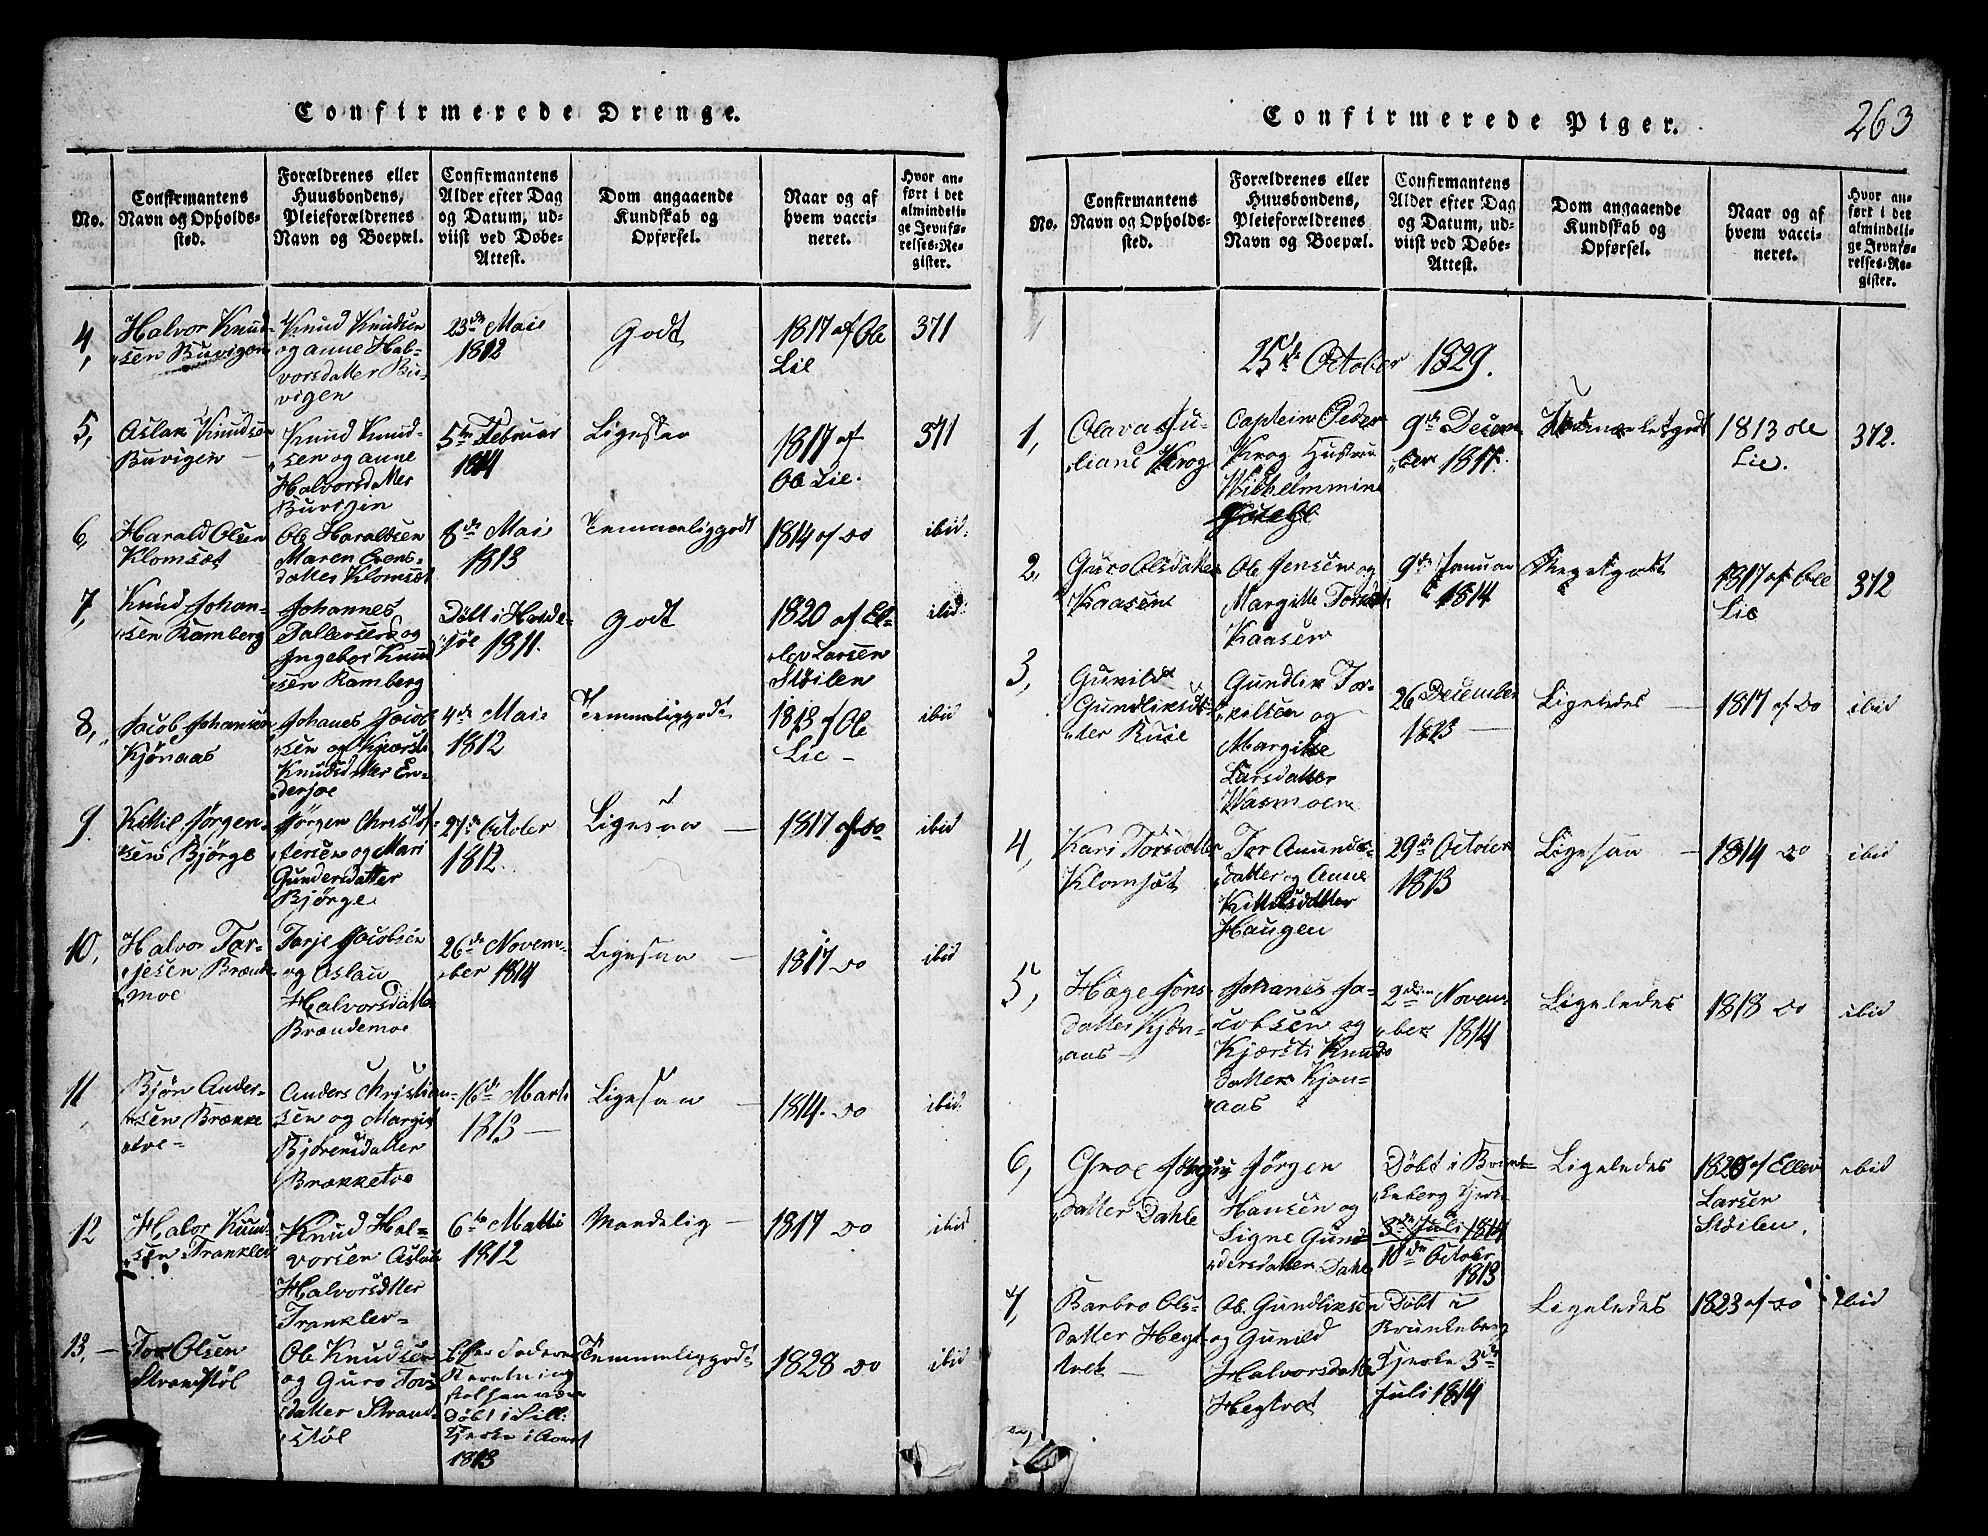 Confirmerede Drenge.
No.
Confirmantens
Navn og Opholds-
sted.
Forældrenes eller
Huusbondens,
Pleieforældrenes
Navn og Boepæl.
Confirmantens
Alder efter Dag
og Datum, ud-
viist ved Døbe-
Attest.
Dom angaaende
Kundskab og
Opførsel.
Naar og af
hvem vacci-
neret.
Hvor an-
ført i det
almindeli-
ge Jevnfø-
relses-Re-
gister.
4,
Halvor Knud-
sen Buvigen
Knud Knudsen
og Anne Hal-
vorsdatter Bu-
vigen
23de Maie
1812
Godt
1817 af Ole
Lie
371
5,
Aslak Knudsen
Buvigen
Knud Knud-
sen og Anne
Halvorsdatter
Buvigen
5te Februar
1814
1817 af
Ole Lie.
371
6,
Harald Olsen
Klomset
Ole Haraldsen
Maren
datter Klomset
8de Maie
1813
Temmeliggodt
1814 af do
ibid.
7,
Knud Johan-
sen Ramberg
Johannes
og
Ingebor Knud
sen Ramberg
Døbt i
1811.
Godt
1820 af El-
lev Larsen
Støilen
ibid.
8,
Jacob Johansen
Kjønaas
Johanes Jacob
sen og Kjersti
Knudsdatter
4de Maie
1812
Temmeliggodt
1818 af Ole
Lie -
ibid
9.
Kittil Jørgen-
sen Bjørge
Jørgen Christof-
fersen og Mari
Gundersdatter
Bjørge
27de October
1812.
Ligesaa
1817 af do
ibid
10,
Halvor Tar-
jesen Brænde
moe
Tarje Jacobsen
og Aslau
Halvorsdatter
Brændemoe
26de Novem-
ber 1814
Ligesaa
1817 do
ibid
11
Bjørn Ander-
sen Brække
toe-
Anders Christian-
sen og Margit
Bjørensdatter
Brækketoe
16de Marti
1813 -
Ligesaa
1814. do
ibid.
12
Halvor Knud-
sen
Knud Hal-
vorsen Aslau
Halvorsdtter
6te Martii
1812
Maadelig
1817 do
ibid
13, -
Tor Olsen
Strandstøl
Ole Knudsen
og Guro Tors
datter Strand
støl
Efter Faderens
Beretning
skal han være
Døbt i
Kjerke i Aaret
1813
Temmeliggodt
1828 do
ibid
Confirmerede Piger.
263
No.
Confirmantens
Navn og Opholds-
sted.
Forældrenes eller
Huusbondens,
Pleieforældrenes
Navn og Boepæl.
Confirmantens
Alder efter Dag
og Datum, ud-
viist ved Døbe-
Attest.
Dom angaaende
Kundskab og
Opførsel.
Naar og af
hvem vacci-
neret.
Hvor an-
ført i det
almindeli-
ge Jevnfø-
relses-Re-
gister.
25de October 1829.
1,
Olava Ju-
liane Krog
Captein Peder
Krog Hustru
Wilhelmmine
9de Decem-
ber
1813 Ole
Lie.
372.
2,
Guro Olsdatter
Kaasene
Ole Jensen og
Margitte Torsdt
Kaasen
9de Januar
1814
Megetgodt
1817 af Ole
Lie
372
3,
Gunild
Gundliksdt-
ter Ruse
Gundlik Tor-
kilsen og
Margitte
Larsdatter
Wasmoen
26 December
1813
Ligeledes
1817 af do
ibid
4,
Kari Torsdatter
Klomset
Tor Amunds-
datter og Anne
Kittilsdatter
Haugen
29de October
1813
Ligesaa
1814 do
ibid
5,
Hæge Jons-
datter Kjøn-
aas -
Johanes Ja-
cobsen og
Kjærsti Knuds
datter Kjøn-
aas
2den Novem-
ber 1814
Ligeledes
1818 do
ibid
6,
Groe Jørgens
datter Dahle
Jørgen
Hansen og
Signe Gun-
dersdatter Dahle
Døbt i Brun-
keberg Kjerke
3de Juli 1814
10de October
1813
Ligeledes
1820 af Ellev
Larsen
Støilen.
ibid
7,
Barbro Ols-
datter Hegt
vet -
Ole Gundliksen
og Gunild
Halvorsdatter
Hegtvet
Døbt i
Brunkeberg
Kjerke 3de
Juli 1814
Ligeledes
1823 af do
ibid